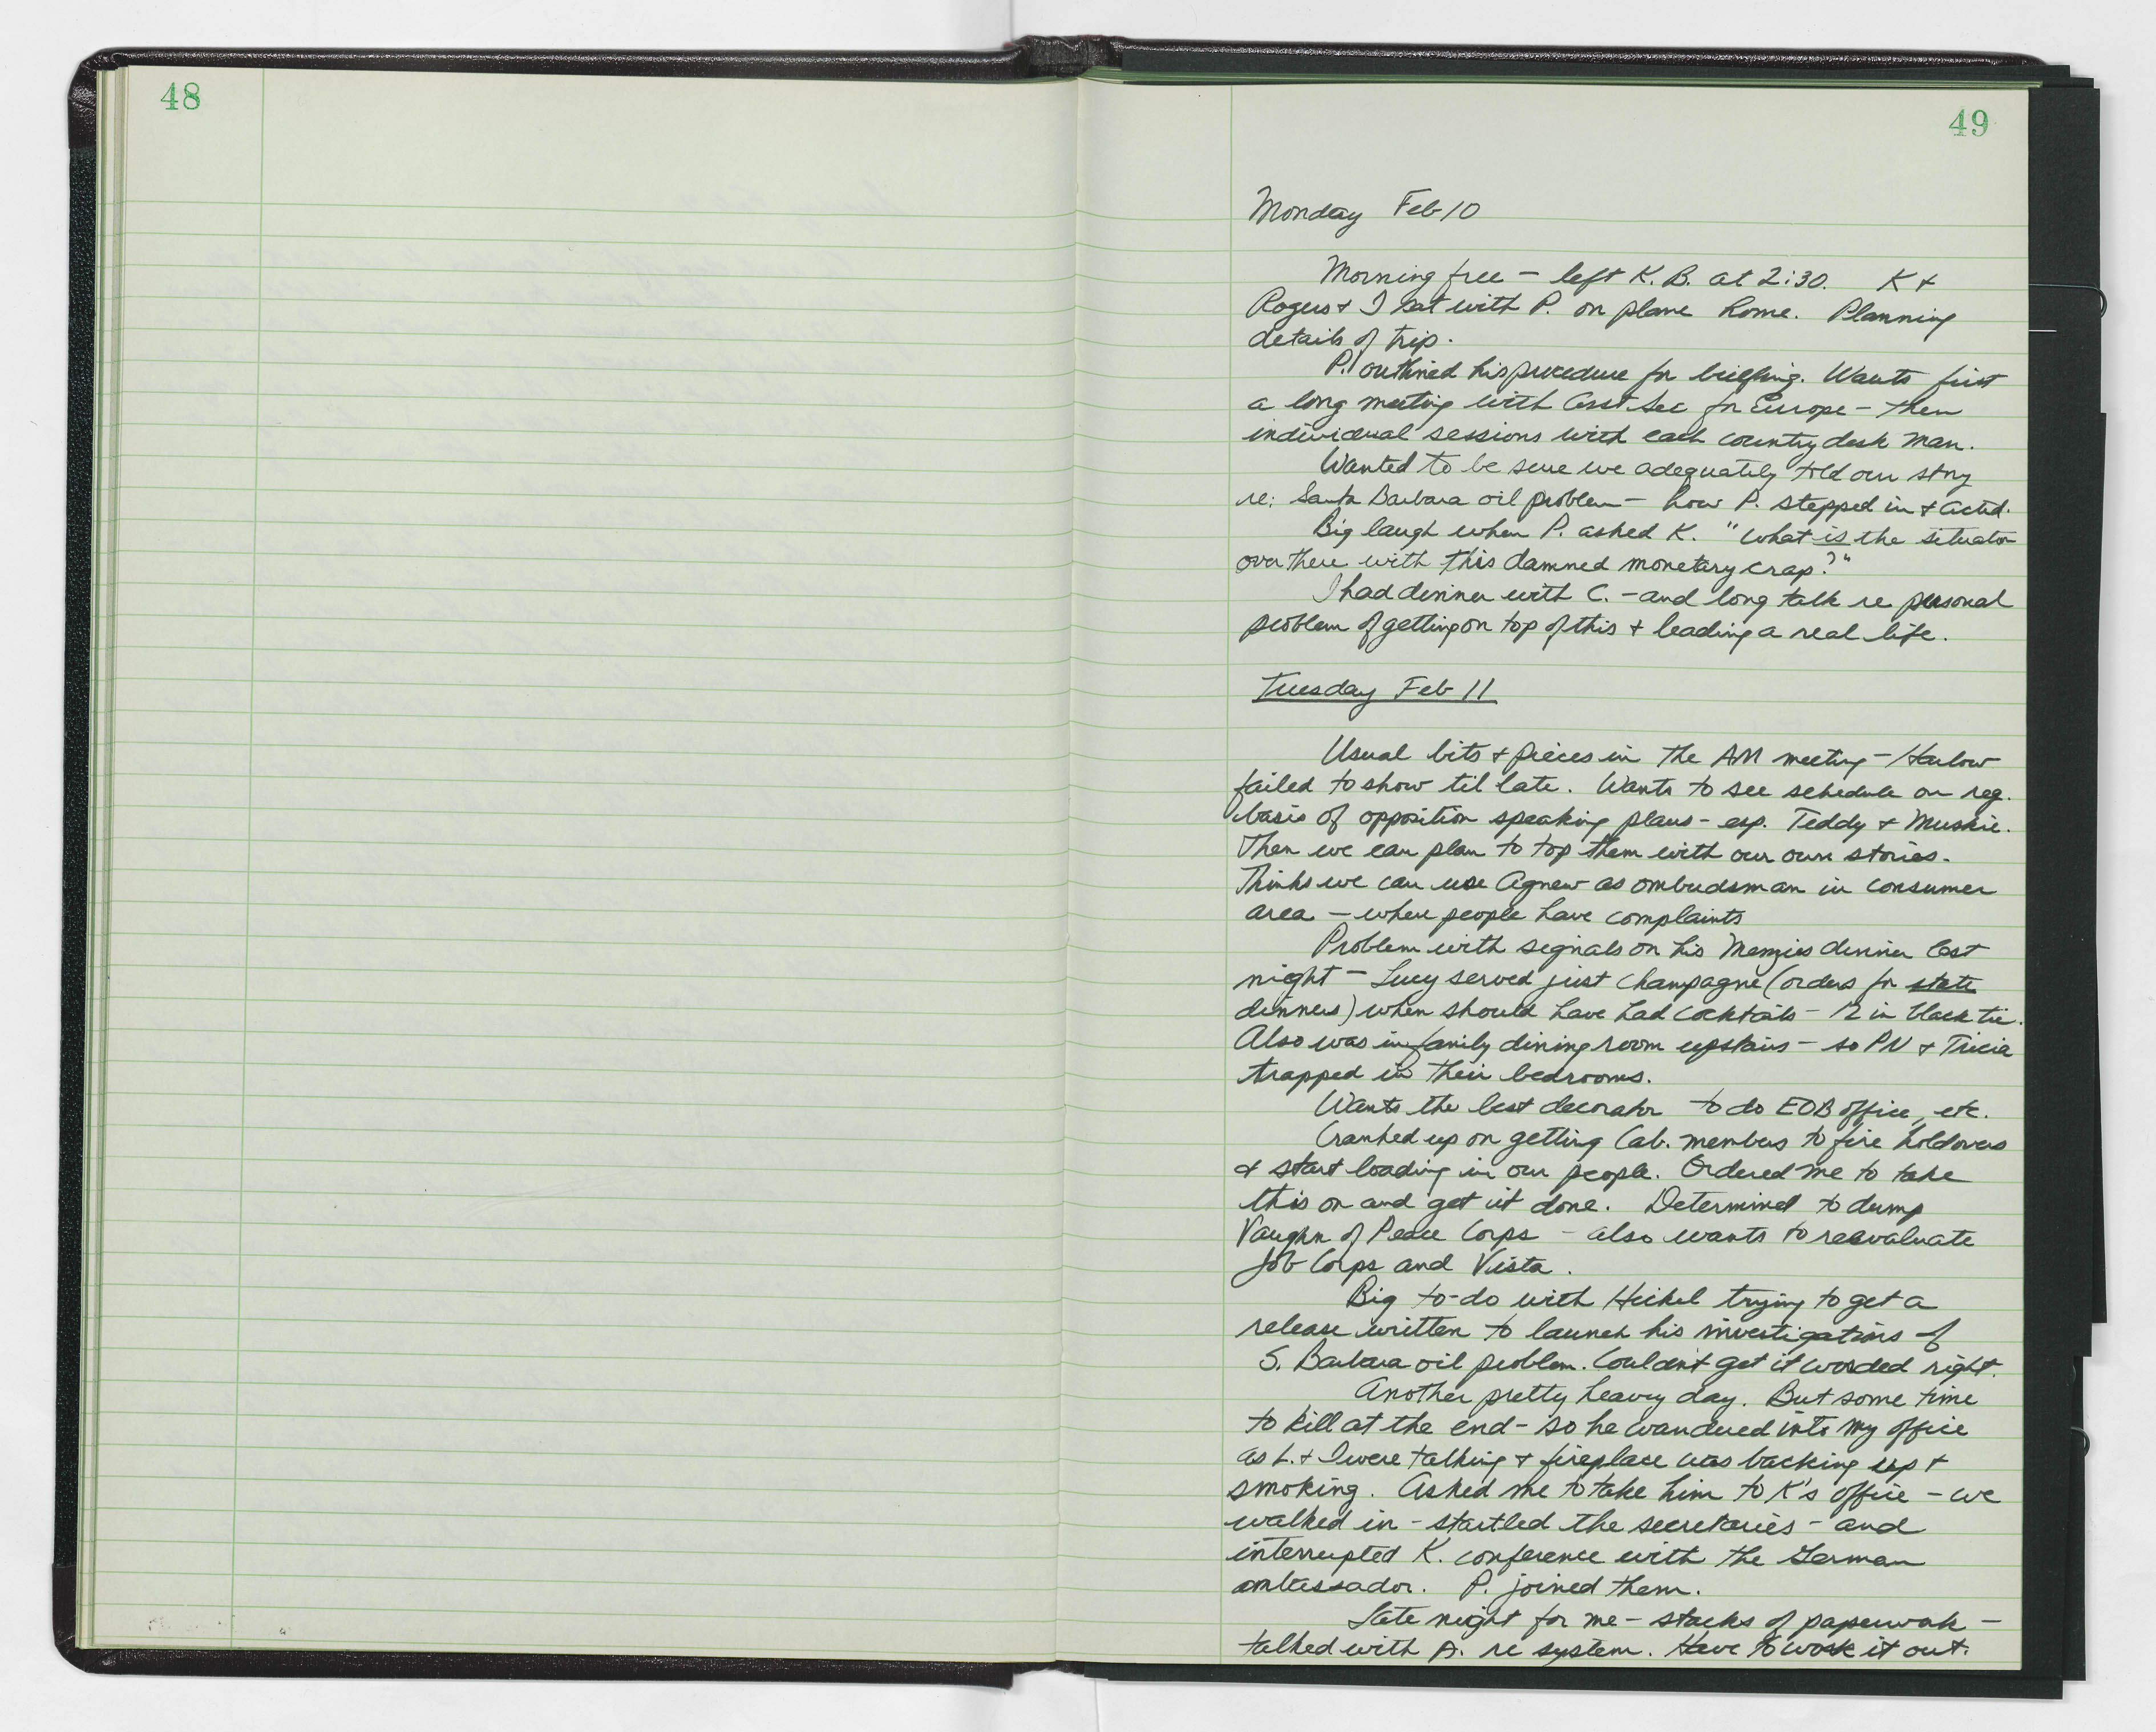 48
49
Monday Feb 10
Morning free – left K.B. at 2:30. K +
Rogers + I sat with P. on plane home. Planning
details of trip.
P. outlined his procedure for briefing. Wants first
a long meeting with Asst Sec for Europe – then
individual sessions with each country desk man.
Wanted to be sure we adequately told our story
re: Santa Barbara oil problem – how P. stepped in + acted.
Big laugh when P. asked K. "what is the situation
over there with this damned monetary crap?"
I had dinner with C. – and long talk re personal
problem of getting on top of this + leading a real life.
Tuesday Feb 11
Usual bits + pieces in the AM meeting – Harlow
failed to show til late. Wants to see schedule on reg.
basis of opposition speaking plans – esp. Teddy + Muskie.
Then we can plan to top them with our own stories.
Thinks we can use Agnew as ombudsman in consumer
area – where people have complaints
Problem with signals on his Menzies dinner last
night – Lucy served just champagne (orders for state
dinners) when should have had cocktails – 12 in black tie.
Also was in family dining room upstairs – so PN + Tricia
trapped in their bedrooms.
Wants the best decorator to do EOB office, etc.
Cranked up on getting Cab. members to fire holdovers
+ start loading in our people. Ordered me to take
this on and get it done. Determined to dump
Vaughn of Peace Corps – also wants to reevaluate
Job Corps and Vista.
Big to-do with Hickel trying to get a
release written to launch his investigations of
S. Barbara oil problem. Couldn't get it worded right.
Another pretty heavy day. But some time
to kill at the end – so he wandered into my office
as L. + I were talking + fireplace was backing up +
smoking. Asked me to take him to K's office – we
walked in – startled the secretaries – and
interrupted K. conference with the German
ambassador. P. joined them.
Late night for me – stacks of paperwork –
talked with re system. Have to work it out.